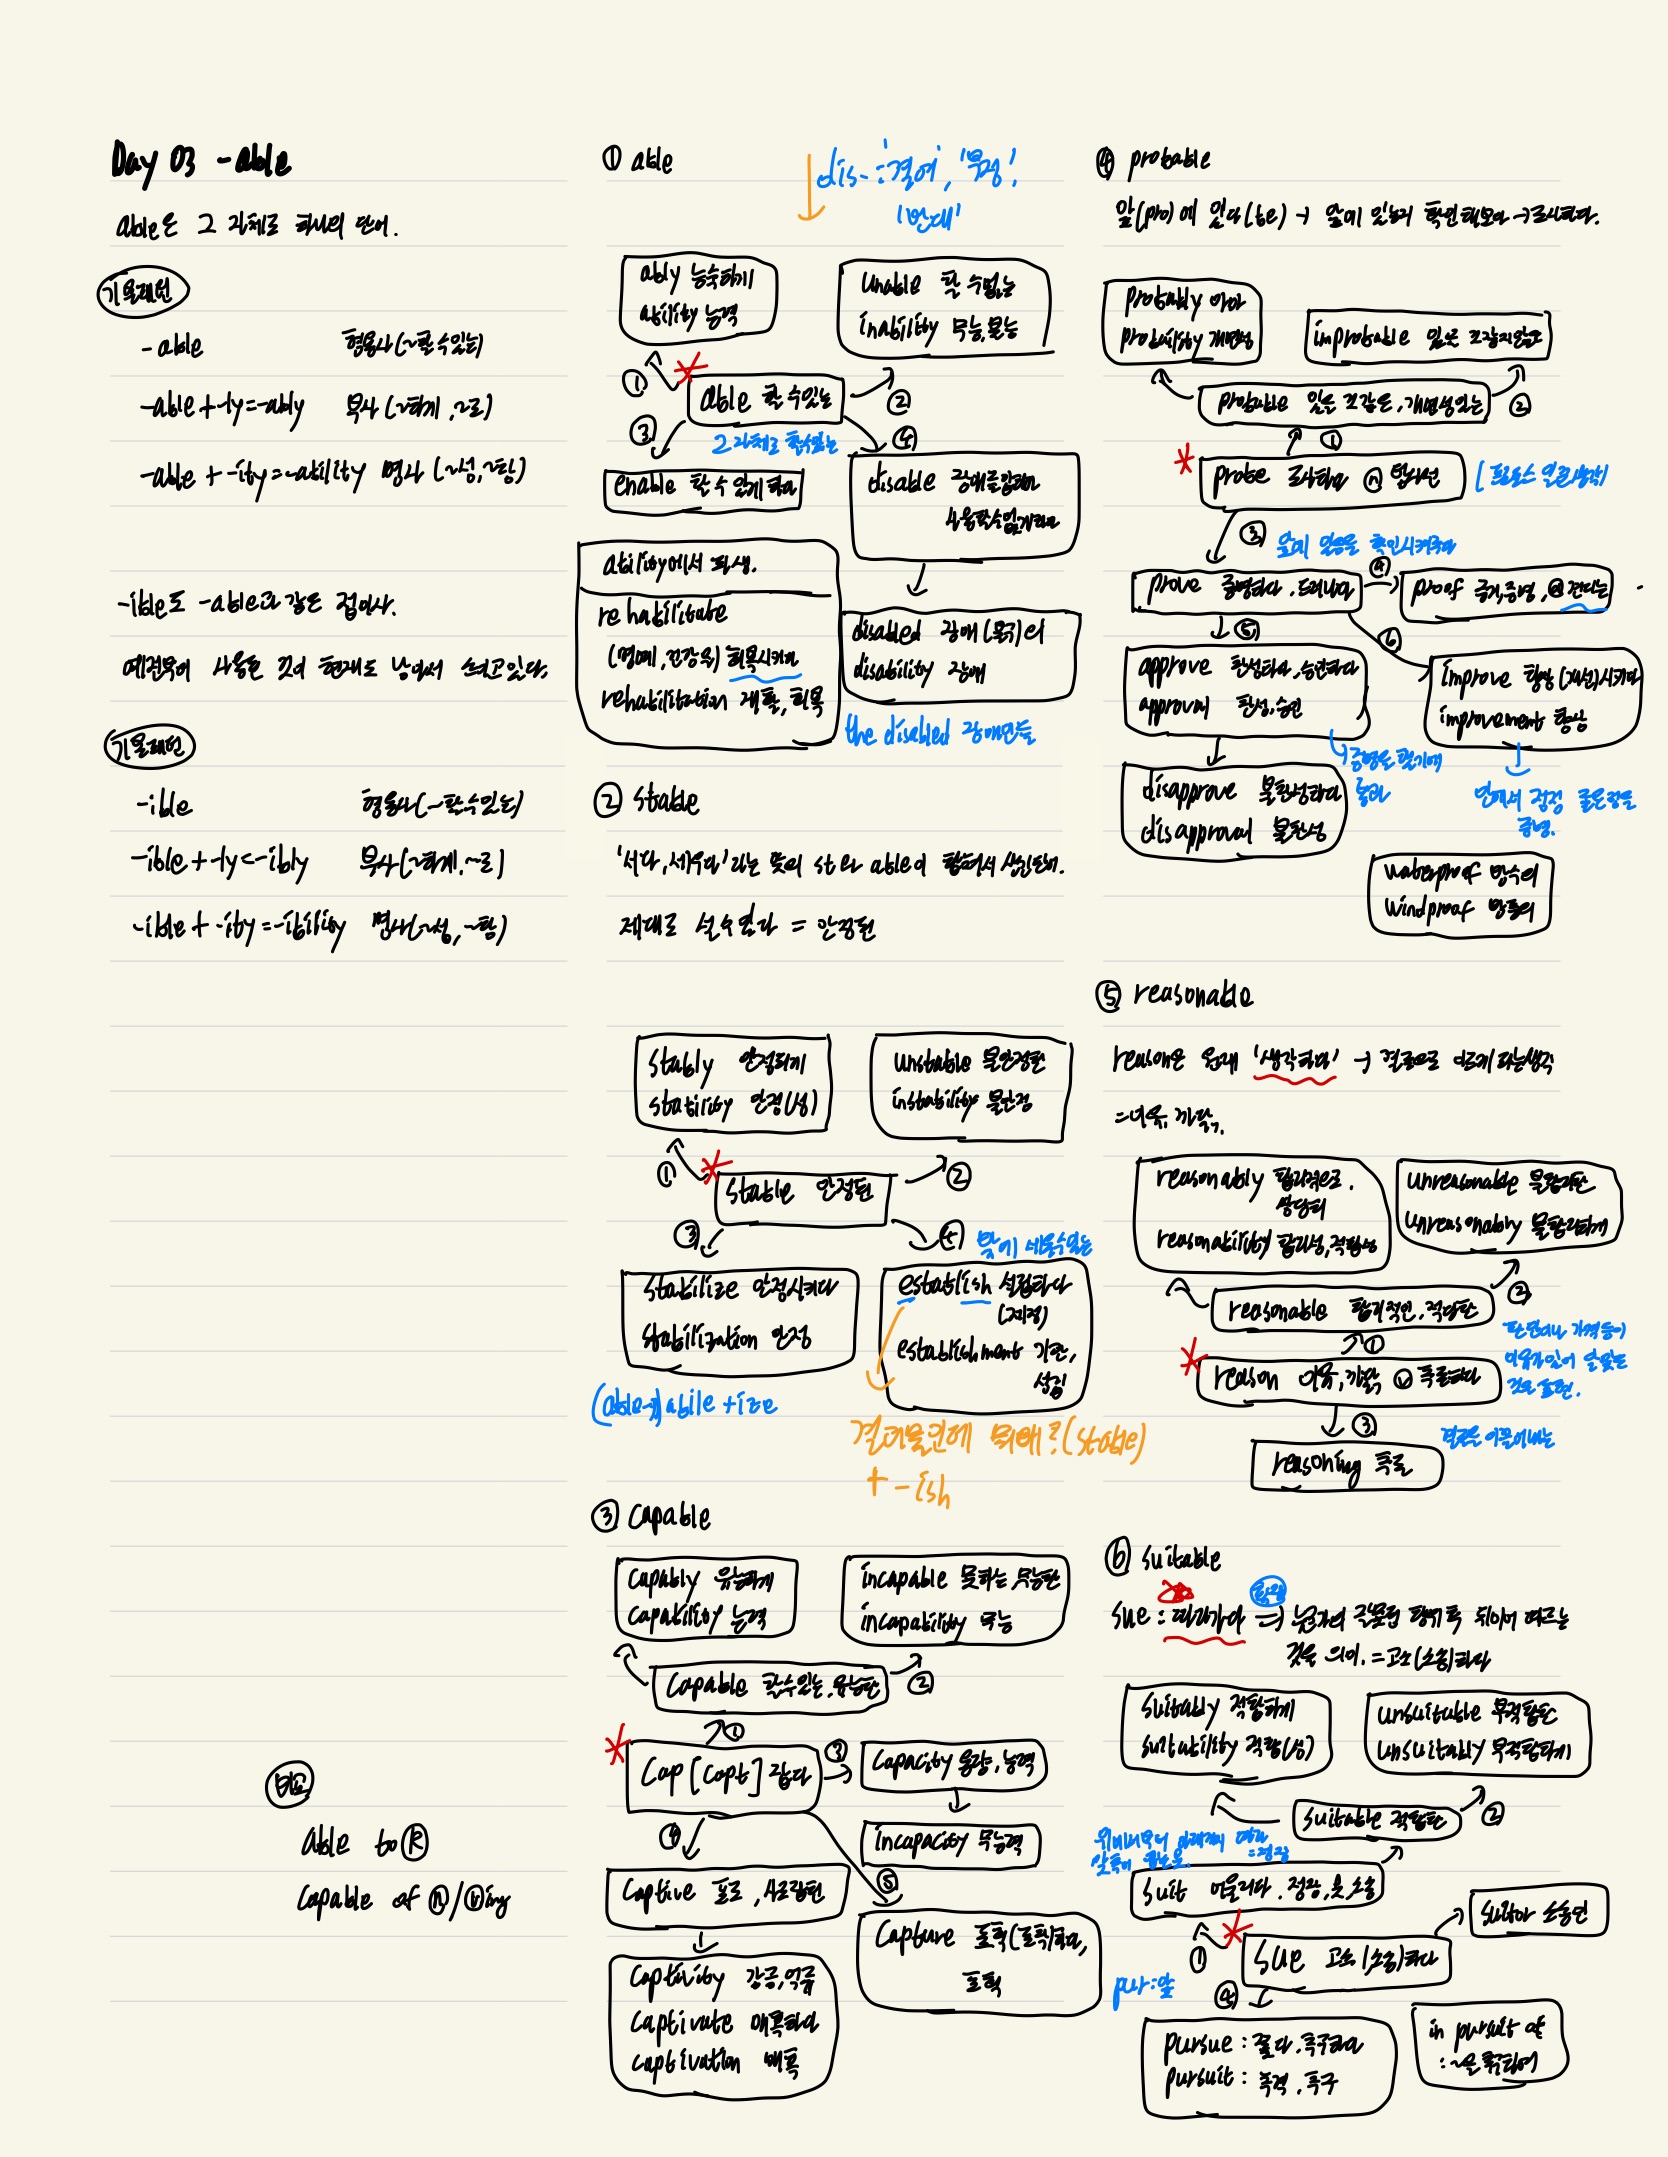 Day 03 -able
able은 그 자체로 하나의 단어.
기출패턴
-able 형용사(~할 수 있는)
-able + -ly = -ably 부사(~하게, ~로)
-able + -ity = -ability 명사(~성, ~함)
-ible도 -able과 같은 접미사.
예전부터 사용된 것이 현재도 남아서 쓰이고 있다.
기출패턴
-ible 형용사(~할 수 있는)
-ible + -ly < -ibly 부사(~하게, ~로)
-ible + -ity = -ibility 명사(~성, ~함)
비교
able to ⓡ
capable of ⓝ/ⓥing
① able
dis- : '결여', '부정',
'반대'
ably 능숙하게
ability 능력
unable 할 수 없는
inability 무능, 불능
① able 할 수 있는 ②
③ 그 자체로 할 수 있는 ④
enable 할 수 있게 하다
disable 장애를 입히다
사용할 수 없게 하다
ability에서 파생.
rehabilitate
(명예, 건강을) 회복시키다
rehabilitation 재활, 회복
disabled 장애(불구)의
disability 장애
the disabled 장애인들
② stable
'서다, 세우다'라는 뜻의 st와 able이 합쳐서
제대로 설 수 있다 = 안정된
stably 안정되게
stability 안정(성)
unstable 불안정한
instability 불안정
① stable 안정된 ②
③ ④ 밖에 세울 수 있는
stabilize 안정시키다
stabilization 안정
establish 설립하다
(제정)
establishment 기관,
설립
(able→) abile + ize
(stable)
+ -ish
③ capable
capably 유능하게
capability 능력
incapable 못하는 무능한
incapability 무능
capable 할 수 있는, 유능한 ②
①
cap [capt] 잡다 ③
capacity 용량, 능력
④
incapacity 무능력
captive 포로, 사로잡힌
⑤
capture 포획(포착)하다,
포획
captivity 감금, 억류
captivate 매혹하다
captivation 매혹
④ probable
앞(pro)에 있다(be) → 앞에 있는지 확인해보다 → 조사하다.
probably 아마
probability 개연성
improbable 있을 것 같지 않은
probable 있을 것 같은, 개연성 있는 ②
①
probe 조사하다 ⓝ 탐사선
③ 앞에 있음을 확인시켜주다
prove 증명하다, 드러나다 ④
proof 증거, 증명, ⓐ 견디는
⑤ ⑥
approve 찬성하다, 승인하다
approval 찬성, 승인
improve 향상(개선)시키다
improvement 향상
→ 증명을 했기에
통과
안에서 점점 좋은 것을
증명.
disapprove 불찬성하다
disapproval 불찬성
waterproof 방수의
windproof 방풍의
⑤ reasonable
reason은 원래 '생각하다' → 결론으로 이르게 하는 생각
= 이유, 까닭.
reasonably 합리적으로,
상당히
reasonability 합리성, 적합성
unreasonable 불합리한
unreasonably 불합리하게
reasonable 합리적인, 적당한 ②
①
판단이나 가격 등이
이유가 있어 알맞은
것을 표현.
reason 이유, 까닭 ⓥ 추론하다
③ 결론을 이끌어내는
reasoning 추론
⑥ suitable
sue : 따라가다 ⇒
것을 의미. = 고소(소송)하다
suitably 적합하게
suitability 적합(성)
unsuitable 부적합한
unsuitably 부적합하게
suitable 적합한 ②
= 정장
suit 어울리다, 정장, 옷, 소송
①
suitor 소송인
sue 고소(소송)하다
pur : 앞
②
pursue : 쫓다, 추구하다
pursuit : 추격, 추구
in pursuit of
: ~을 추적하여